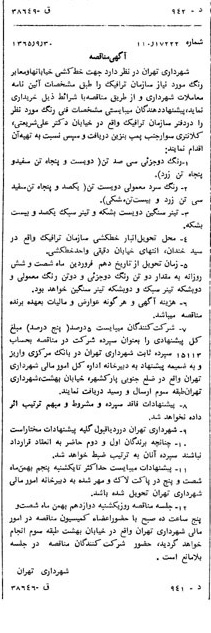 د - ۹۴۲ ق - ۳۸۶۴۹۰
شماره ۱۱۰/۱۷۲۲۲ ۱۳۶۵/۹/۳۰
آگهی مناقصه
شهرداری تهران در نظر دارد جهت خط‌کشی خیابانها ومعابر
رنگ مورد نیاز سازمان ترافیک را طبق مشخصات آئین نامه
معاملات شهرداری و از طریق مناقصه با شرائط ذیل خریداری
نماید، پیشنهاددهندگان میبایستی مشخصات فنی رنگ مورد نظر
را دردفتر سازمان ترافیک واقع در خیابان دکتر علی شریعتی
کلانتری سوار جنب پمپ بنزین دریافت و سپس نسبت به تهیه آن
اقدام نمایند:
۱- رنگ دوجزئی سی صد تن (دویست و پنجاه تن سفید و
پنجاه تن زرد).
۲- رنگ سرد معمولی دویست تن (یکصد و پنجاه تن سفید
سی تن زرد و بیست تن مشکی).
۳- تینر سنگین دویست بشکه و تینر سبک یکصد و بیست
بشکه.
۴- محل تحویل انبار خط‌کشی سازمان ترافیک واقع در
سید خندان، انتهای خیابان دقیقی واحد خط‌کشی.
۵- زمان تحویل از تاریخ دهم فروردین ماه شصت و شش
روزانه به مقدار دو تن رنگ دوجزئی و دوتن رنگ معمولی و
دوبشکه تینر سبک و دوبشکه تینر سنگین خواهد بود.
۶- هزینه آگهی و هر گونه عوارض و مالیات بعهده برنده
مناقصه میباشد.
۷- شرکت کنندگان میبایست ۵درصد (پنج درصد) مبلغ
کل پیشنهادی را بعنوان سپرده شرکت در مناقصه بحساب
۱۵۱۱۳ سپرده ثابت شهرداری تهران در بانک مرکزی واریز
و به ضمیمه پیشنهاد به دبیرخانه اداره کل امور مالی شهرداری
تهران واقع در ضلع جنوبی پارکشهر، خیابان بهشت، شهرداری
تهران طبقه سوم ارسال و رسید دریافت نمایند.
۸- پیشنهادات فاقد سپرده و مشروط و مبهم ترتیب اثر
داده نخواهد شد.
۹- شهرداری تهران دررد یا قبول کلیه پیشنهادات مختار است
۱۰- چنانچه برندگان اول و دوم حاضر به انعقاد قرارداد
نباشند سپرده آنان به ترتیب ضبط خواهد شد.
۱۱- پیشنهادات میبایست حداکثر تا یکشنبه پنجم بهمن‌ماه
شصت و پنج در پاکت لاک و مهر شده به دبیرخانه امور مالی
شهرداری تهران تحویل شده باشد.
۱۲- جلسه مناقصه روز یکشنبه دوازدهم بهمن ماه شصت و
پنج ساعت ده صبح با حضور اعضاء کمیسیون مناقصه در امور
مالی شهرداری تهران واقع در خیابان بهشت طبقه سوم انجام
خواهد گردید، حضور شرکت کنندگان مناقصه در جلسه
بلامانع است.
شهرداری تهران
د - ۹۴۱ ق - ۳۸۶۴۹۰